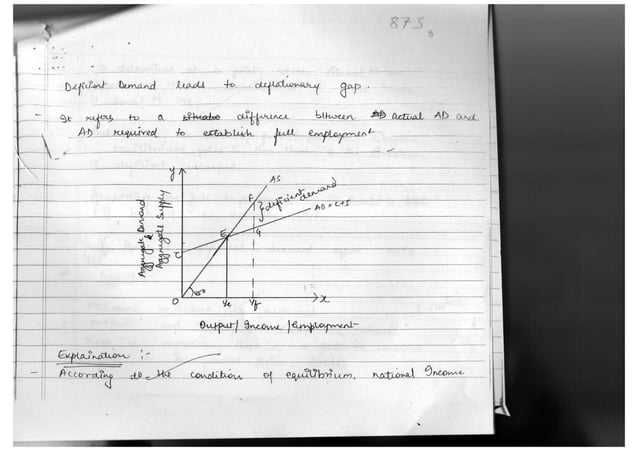 875
Deficient Demand leads to deflationary gap.
- It refers to a difference between actual AD and
AD required to establish full employment
y
AS
F
deficient demand
AD = C+S
E
G
C
Aggregate Demand
Aggregate Supply
O
45°
Ye
Yf
x
Output / Income / employment
Explaination :-
- According to the condition of equilibrium, national Income